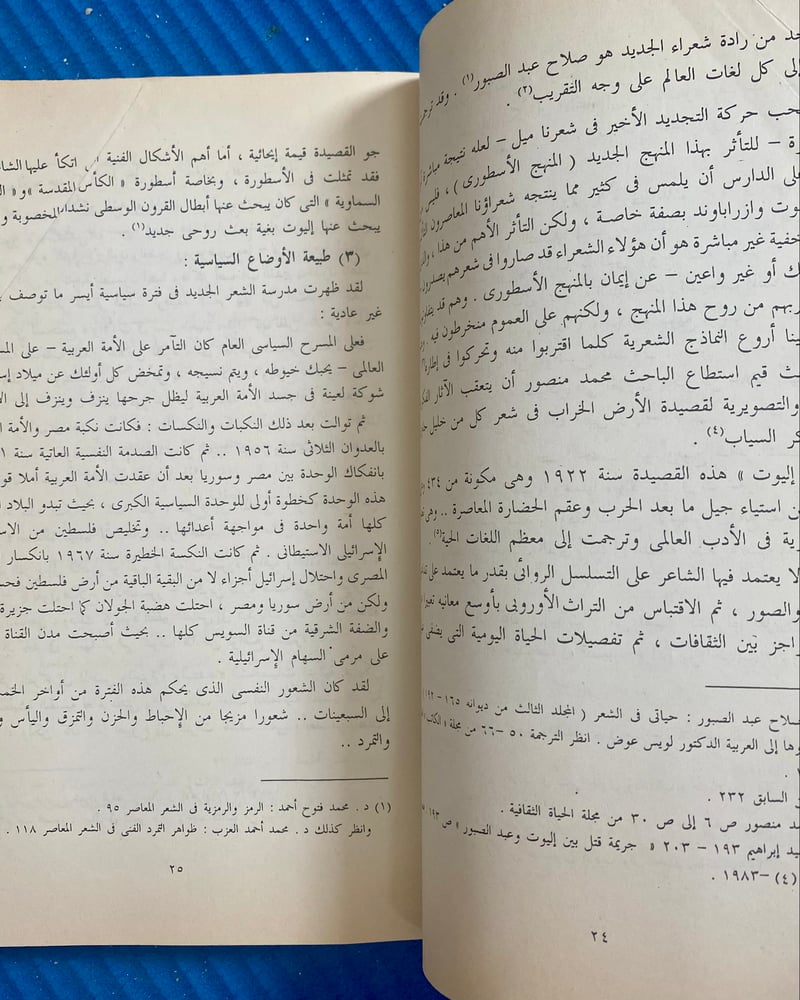 حد من رادة شعراء الجديد هو صلاح عبد الصبور(١) . وقد
إلى كل لغات العالم على وجه التقريب(٢) .
حب حركة التجديد الأخير فى شعرنا ميل – لعله نتيجة مباشرة
رة – للتأثر بهذا المنهج الجديد ( المنهج الأسطورى ) ، فليس
على الدارس أن يلمس فى كثير مما ينتجه شعراؤنا المعاصرون
وت وازراباوند بصفة خاصة ، ولكن التأثر الأهم من هذا ،
خفية غير مباشرة هو أن هؤلاء الشعراء قد صاروا فى شعرهم يصدرون
ك أو غير واعين – عن إيمان بالمنهج الأسطورى . وهم قد
ربهم من روح هذا المنهج ، ولكنهم على العموم منخرطون فيه .
ينا أروع النماذج الشعرية كلما اقتربوا منه وتحركوا فى إطاره
ث قيم استطاع الباحث محمد منصور أن يتعقب الآثار
والتصويرية لقصيدة الأرض الخراب فى شعر كل من خليل
كر السياب(٤) .
إليوت » هذه القصيدة سنة ١٩٢٢ وهى مكونة من ٤٣٤
ن استياء جيل ما بعد الحرب وعقم الحضارة المعاصرة .. وهى
رية فى الأدب العالمى وترجمت إلى معظم اللغات الحية(٥) .
لا يعتمد فيها الشاعر على التسلسل الروائى بقدر ما يعتمد على
والصور ، ثم الاقتباس من التراث الأوروبى بأوسع معانيه
راجز بين الثقافات ، ثم تفصيلات الحياة اليومية التى يضفى
صلاح عبد الصبور : حياتى فى الشعر ( المجلد الثالث من ديوانه ١٦٥ – ١٩٢
وها إلى العربية الدكتور لويس عوض . انظر الترجمة ٥٠ – ٦٦ من مجلة
.
السابق ٢٣٢ .
د منصور ص ٦ إلى ص ٣٠ من مجلة الحياة الثقافية .
يد إبراهيم ١٩٣ – ٢٠٣ « جريمة قتل بين إليوت وعبد الصبور » ص ١٩٣
(٤) – ١٩٨٣ .
٢٤
جو القصيدة قيمة إيحائية ، أما أهم الأشكال الفنية ، اتكأ عليها
فقد تمثلت فى الأسطورة ، وبخاصة أسطورة « الكأس المقدسة » و«
السماوية » التى كان يبحث عنها أبطال القرون الوسطى نشدا المخصوبة و
يبحث عنها إليوت بغية بعث روحى جديد(١) .
(٣) طبيعة الأوضاع السياسية :
لقد ظهرت مدرسة الشعر الجديد فى فترة سياسية أيسر ما توصف
غير عادية :
فعلى المسرح السياسى العام كان التآمر على الأمة العربية – على
العالمى – يحبك خيوطه ، ويتم نسيجه ، وتمخض كل أولئك عن ميلاد
شوكة لعينة فى جسد الأمة العربية ليظل جرحها ينزف وينزف إلى
ثم توالت بعد ذلك النكبات والنكسات : فكانت نكبة مصر والأمة
بالعدوان الثلاثى سنة ١٩٥٦ .. ثم كانت الصدمة النفسية العاتية سنة
بانفكاك الوحدة بين مصر وسوريا بعد أن عقدت الأمة العربية أملا
هذه الوحدة كخطوة أولى للوحدة السياسية الكبرى ، بحيث تبدو البلاد
كلها أمة واحدة فى مواجهة أعدائها .. وتخليص فلسطين من
الإسرائيلى الاستيطانى . ثم كانت النكسة الخطيرة سنة ١٩٦٧ بانكسار
المصرى واحتلال إسرائيل أجزاء لا من البقية الباقية من أرض فلسطين
ولكن من أرض سوريا ومصر ، احتلت هضبة الجولان كما احتلت جزيرة
والضفة الشرقية من قناة السويس كلها .. بحيث أصبحت مدن القناة
على مرمى السهام الإسرائيلية .
لقد كان الشعور النفسى الذى يحكم هذه الفترة من أواخر
إلى السبعينات .. شعورا مزيجا من الإحباط والحزن والتمزق واليأس و
والتمرد ..
(١) د . محمد فتوح أحمد : الرمز والرمزية فى الشعر المعاصر ٩٥ .
وانظر كذلك د . محمد أحمد العزب : ظواهر التمرد الفنى فى الشعر المعاصر ١١٨ .
٢٥